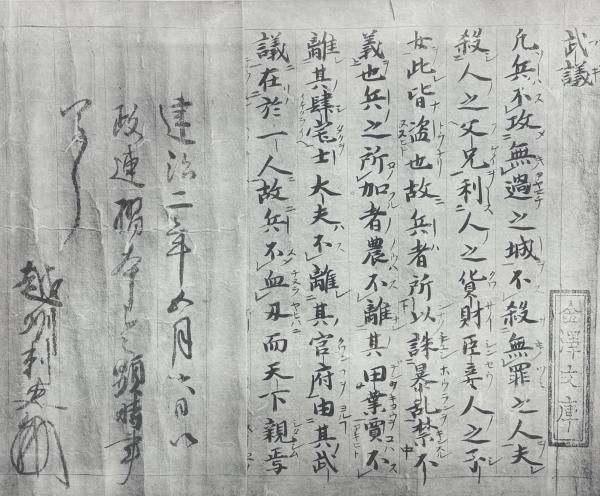 武議
凡兵不攻無過之城不殺無罪之人夫
殺人之父兄利人之貨財臣妾人之子
女此皆盗也故兵者所以誅暴乱禁不
義也兵之所加者農不離其田業賈不
離其肆宅士大夫不離其官府由其武
議在於一人故兵不血刃而天下親焉
建治二年五月六日以
政連摺本
了
越州刺史
金澤文庫